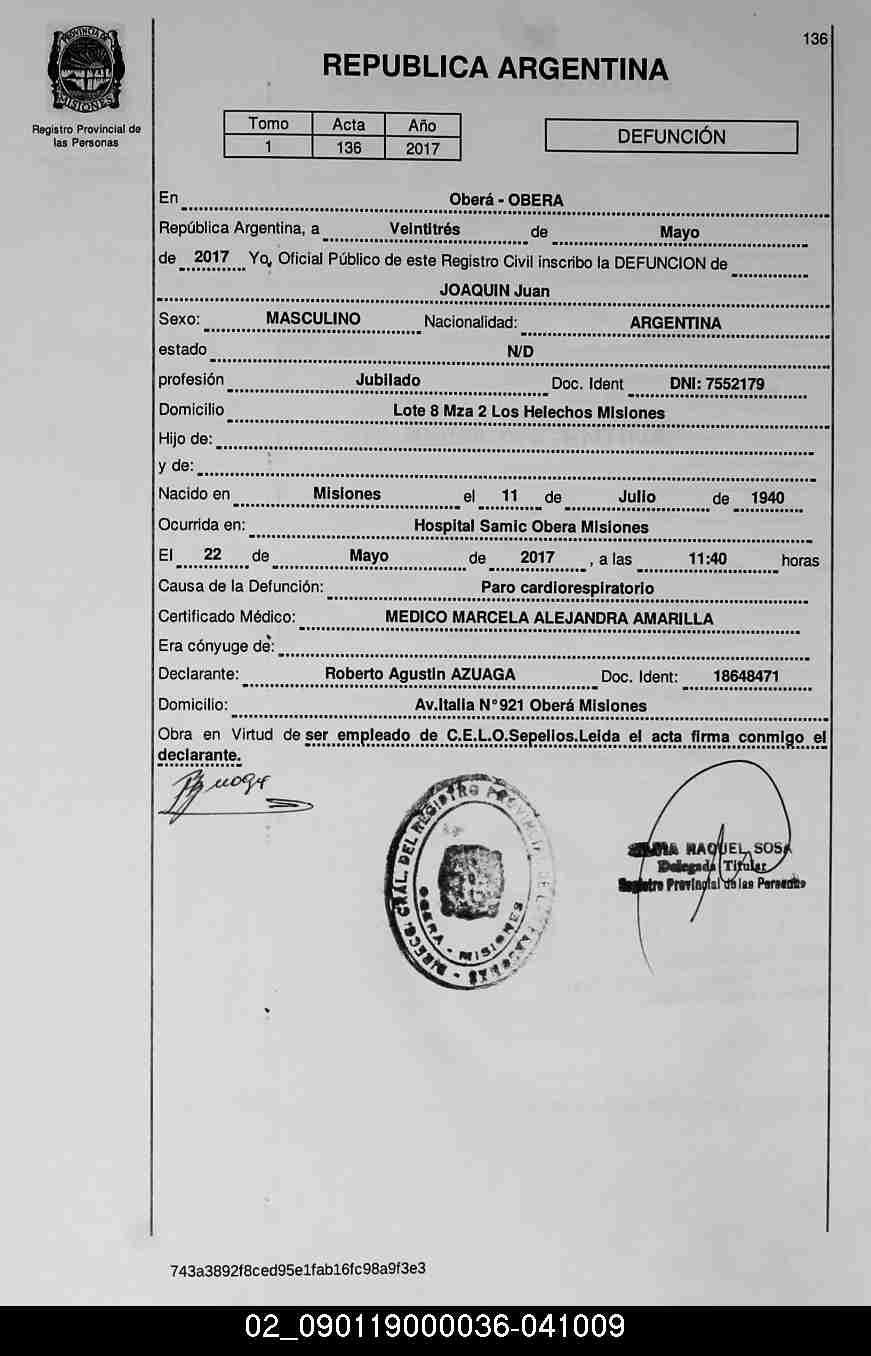 136
PROVINCIA DE
MISIONES
Registro Provincial de
las Personas
REPUBLICA ARGENTINA
Tomo Acta Año
1 136 2017
DEFUNCIÓN
En Oberá - OBERA
República Argentina, a Veintitrés de Mayo
de 2017 Yo, Oficial Público de este Registro Civil inscribo la DEFUNCION de
JOAQUIN Juan
Sexo: MASCULINO Nacionalidad: ARGENTINA
estado N/D
profesión Jubilado Doc. Ident DNI: 7552179
Domicilio Lote 8 Mza 2 Los Helechos Misiones
Hijo de:
y de:
Nacido en Misiones el 11 de Julio de 1940
Ocurrida en: Hospital Samic Obera Misiones
El 22 de Mayo de 2017 , a las 11:40 horas
Causa de la Defunción: Paro cardiorespiratorio
Certificado Médico: MEDICO MARCELA ALEJANDRA AMARILLA
Era cónyuge de:
Declarante: Roberto Agustin AZUAGA Doc. Ident: 18648471
Domicilio: Av.Italia N°921 Oberá Misiones
Obra en Virtud de ser empleado de C.E.L.O.Sepelios.Leida el acta firma conmigo el
declarante.
DIRECC. GRAL. DEL REGISTRO PROVINCIAL DE LAS PERSONAS
OBERA - MISIONES
RAQUEL SOSA
Delegada Titular
Registro Provincial de las Personas
743a3892f8ced95e1fab16fc98a9f3e3
02_090119000036-041009